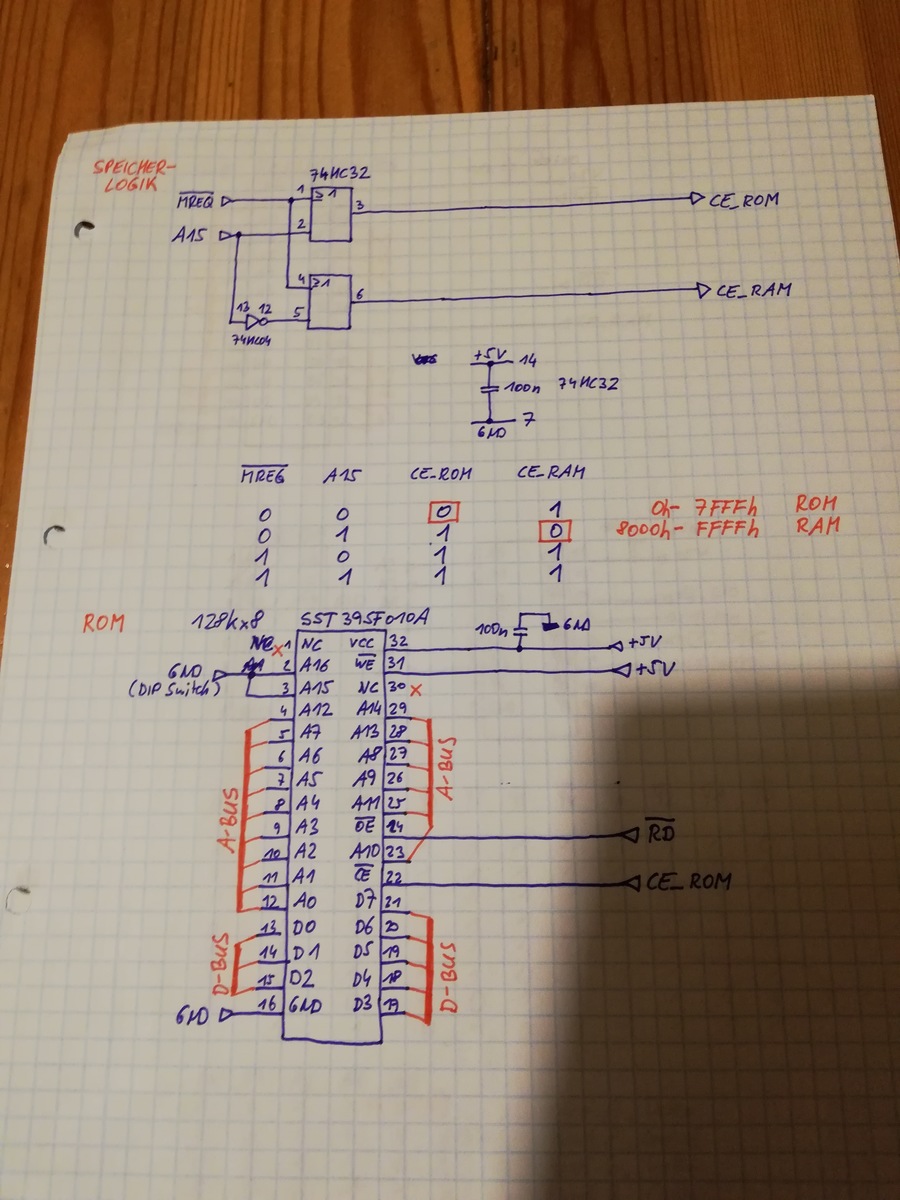 SPEICHER-
LOGIK
74HC32
MREQ 1 ≥1 3 CE_ROM
A15 2
4 ≥1 6 CE_RAM
13 12 5
74HC04
+5V 14
100n 74HC32
GND 7
MREG A15 CE_ROM CE_RAM
0 0 0 1 0h- 7FFFh ROM
0 1 1 0 8000h- FFFFh RAM
1 0 1 1
1 1 1 1
ROM 128kx8 SST39SF010A
100n GND
NC x 1 NC VCC 32 +5V
GND 2 A16 WE 31 +5V
(DIP Switch) 3 A15 NC 30 x
4 A12 A14 29
5 A7 A13 28
6 A6 A8 27
7 A5 A9 26
8 A4 A11 25
9 A3 OE 24 RD
10 A2 A10 23
11 A1 CE 22 CE_ROM
12 A0 D7 21
13 D0 D6 20
14 D1 D5 19
15 D2 D4 18
GND 16 GND D3 17
A-BUS
A-BUS
D-BUS
D-BUS